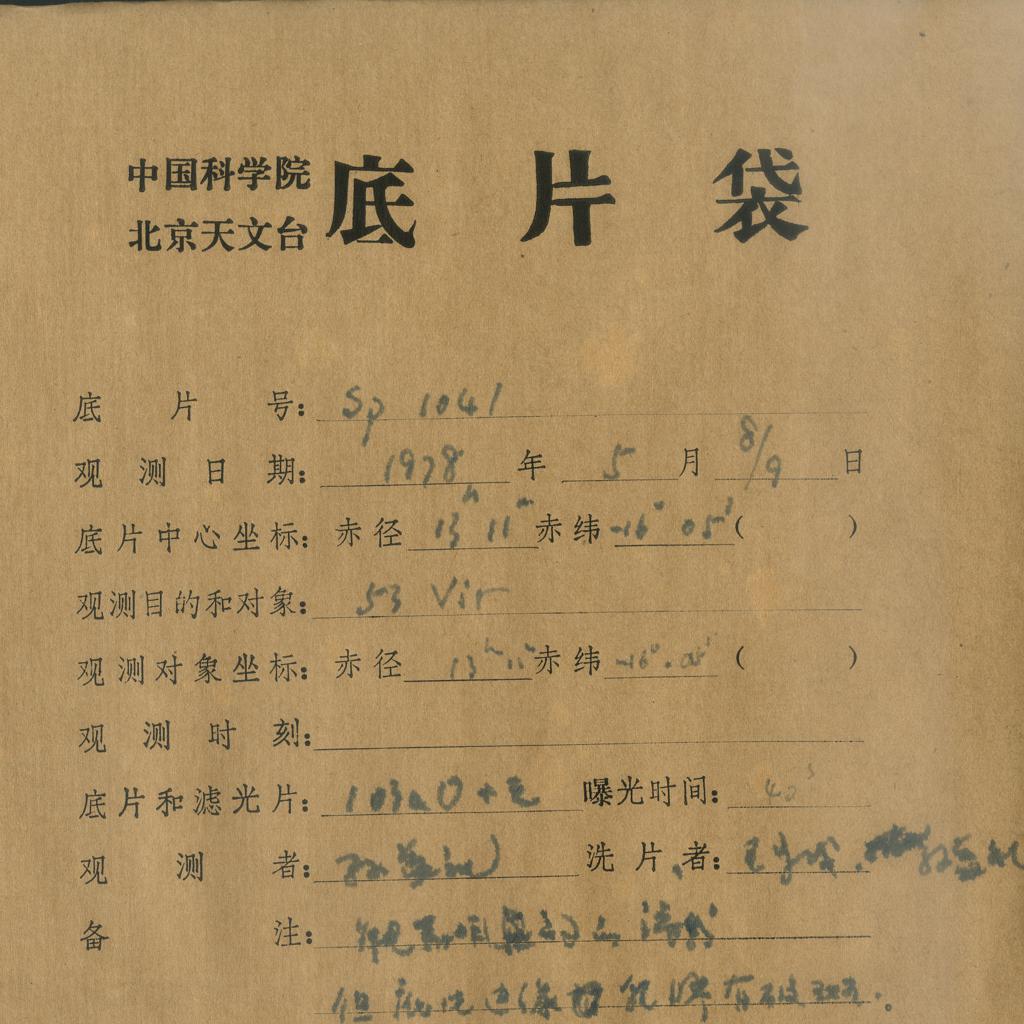 中国科学院
北京天文台 底片袋
底片号: Sp 1041
观测日期: 1978 年 5 月 8/9 日
底片中心坐标: 赤径 13h 11m 赤纬 -16° 05' ( )
观测目的和对象: 53 Vir
观测对象坐标: 赤径 13h 11m 赤纬 -16° 05' ( )
观测时刻:
底片和滤光片: 103aO + 曝光时间: 40s
观测者: 洗片者:
备注:
但 边缘 有